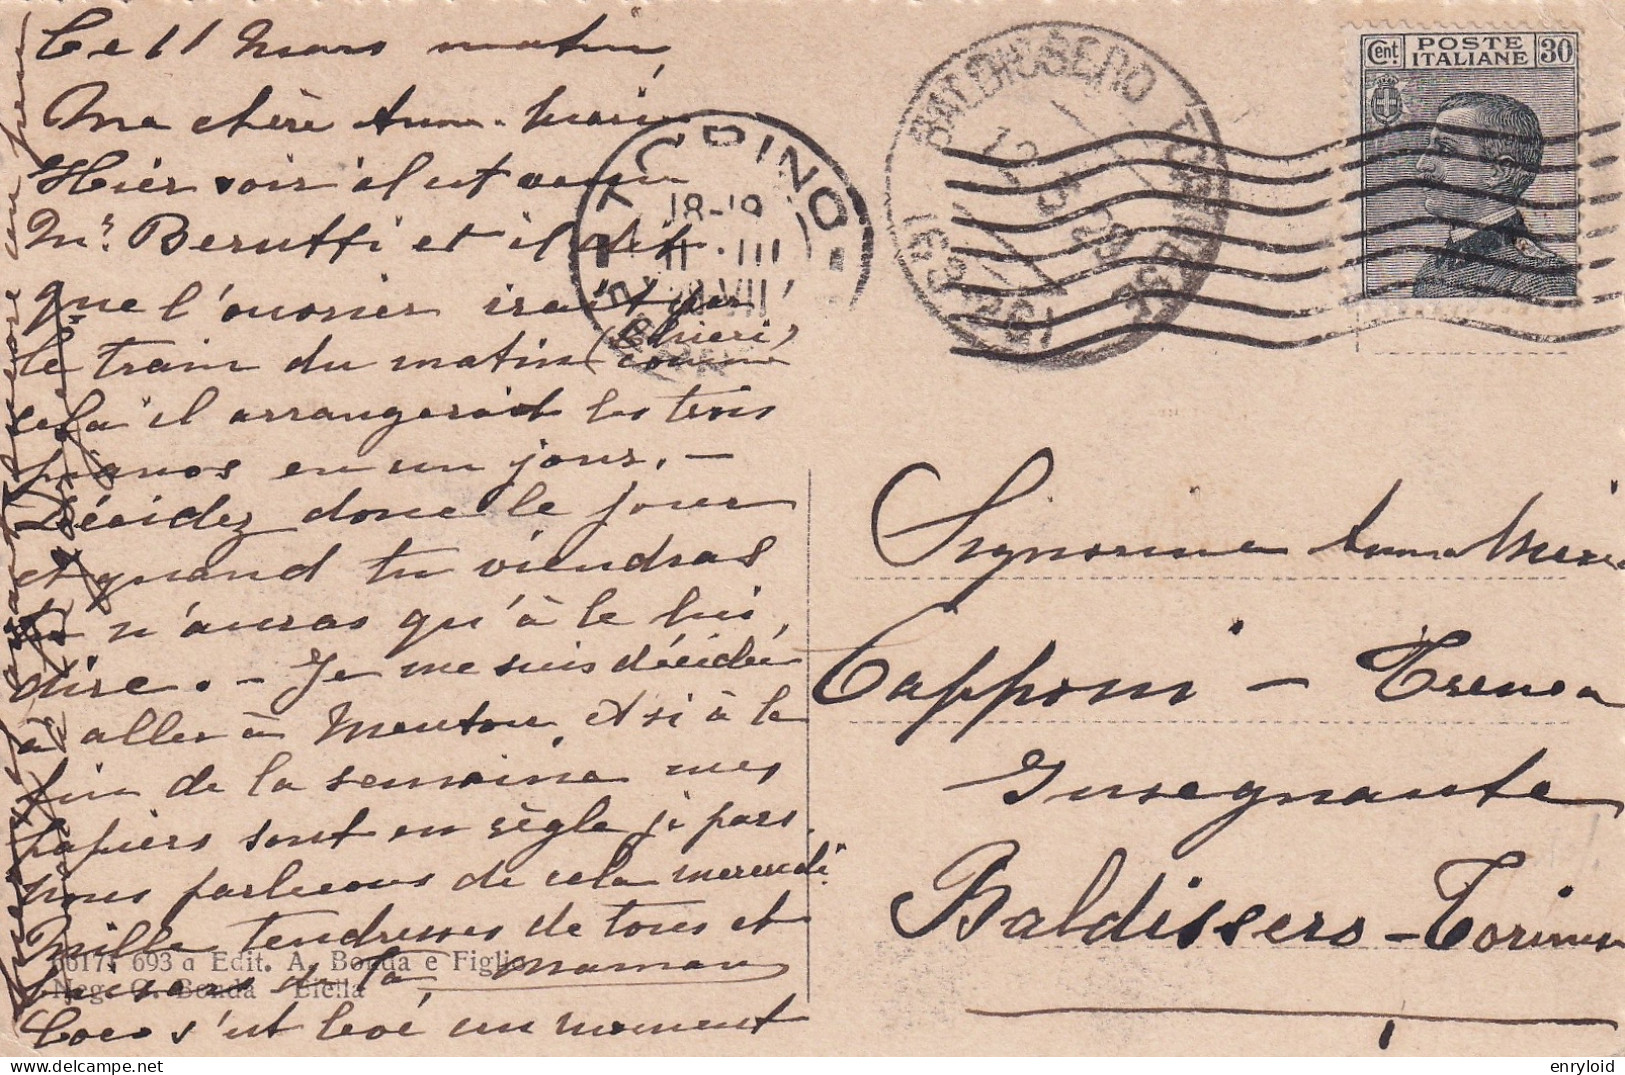 Ce 11 Mars matin
Ma chère Anna-Maria
Hier soir il est venu
Mr. Berutti et il dit
que l'ouvrier irait par
le train du matin (Chieri) comme
cela il arrangerait les trois
pianos en un jour. -
Décidez donc le jour
et quand tu viendras
tu n'auras qu'à le lui
dire. - Je me suis décidée
à aller à Menton, et si à la
fin de la semaine mes
papiers sont en règle je pars.
nous parlerons de cela mercredi.
Mille tendresses de tous et
de ta maman
Coco s'est levé un moment
encore un peu
POSTE ITALIANE
Cent. 30
BALDISSERO TORINESE
12 3
TORINO
18-19
11 III
VII
Signorina Anna Maria
Capponi - Trenea
Insegnante
Baldissero - Torinese
693 a Edit. A. Bonda e Figlio
Neg. G. Bonda - Biella
enryloid